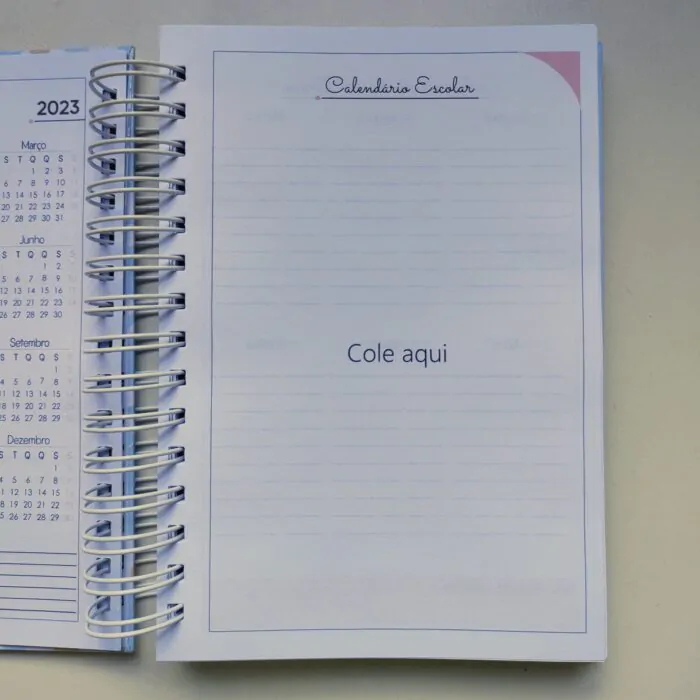 2023
Março
S T Q Q S
1 2 3
6 7 8 9 10
13 14 15 16 17
20 21 22 23 24
27 28 29 30 31
Junho
S T Q Q S
1 2
5 6 7 8 9
12 13 14 15 16
19 20 21 22 23
26 27 28 29 30
Setembro
S T Q Q S
1
4 5 6 7 8
11 12 13 14 15
18 19 20 21 22
25 26 27 28 29
Dezembro
S T Q Q S
1
4 5 6 7 8
1 12 13 14 15
8 19 20 21 22
5 26 27 28 29
Calendário Escolar
Cole aqui